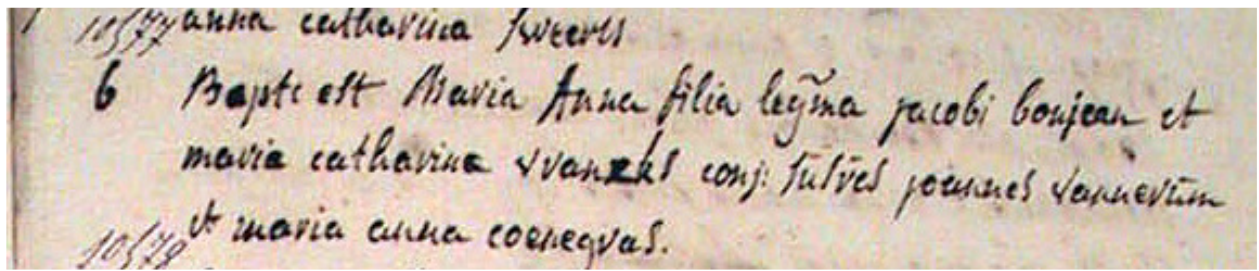 10577 anna catharina sweerts
6 Bapte est Maria Anna filia legŷma jacobi bonjean et
maria catharina conj: susres joannes vannerum
10578 et maria anna coenegras.